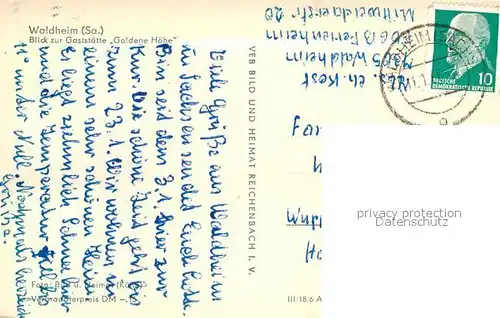 Waldheim (Sa.)
Blick zur Gaststätte „Goldene Höhe"
Viele Grüße aus Waldheim
in Sachsen sendet Euch Lotte.
Bin seid dem 3.1. hier zur
Kur. Die schöne Zeit geht bis
zum 23.1. Wir wohnen in
einem sehr schönen Heim
Es liegt ziemlich Schnee hier
und die Temperatur
11° under Null. Nochmals herzliche
Grüße.
VEB BILD UND HEIMAT REICHENBACH I. V.
Abs. Ch. Kost
7305 Waldheim
Ferienheim
Mittweidaerstr 20
WALDHEIM (SACHS)
DEUTSCHE
DEMOKRATISCHE REPUBLIK
10
a
privacy protection
Datenschutz
Foto: Bild u. Heimat
Verbraucherpreis DM
III 18/6 A